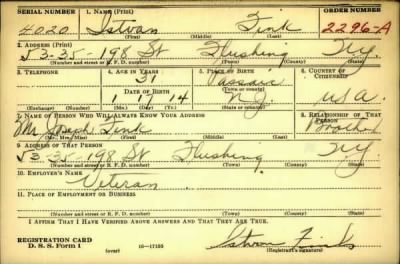 SERIAL NUMBER 1. NAME (Print) ORDER NUMBER
4020 Istvan Fink 2296-A
(First) (Middle) (Last)
2. ADDRESS (Print)
53-35-198 St Flushing N.Y.
(Number and street or R. F. D. number) (Town) (County) (State)
3. TELEPHONE 4. AGE IN YEARS 5. PLACE OF BIRTH 6. COUNTRY OF CITIZENSHIP
31 Passaic
DATE OF BIRTH (Town or county)
1 14 N.J. U.S.A.
(Exchange) (Number) (Mo.) (Day) (Yr.) (State or country)
7. NAME OF PERSON WHO WILL ALWAYS KNOW YOUR ADDRESS 8. RELATIONSHIP OF THAT PERSON
Mr Joseph Fink Brother
(Mr., Mrs., Miss) (First) (Middle) (Last)
9. ADDRESS OF THAT PERSON
53-35-198 St Flushing N.Y.
(Number and street or R. F. D. number) (Town) (County) (State)
10. EMPLOYER'S NAME
Veteran
11. PLACE OF EMPLOYMENT OR BUSINESS
(Number and street or R. F. D. number) (Town) (County) (State)
I AFFIRM THAT I HAVE VERIFIED ABOVE ANSWERS AND THAT THEY ARE TRUE.
REGISTRATION CARD
D. S. S. Form 1 (over) 16-17105 Istvan Fink
(Registrant's signature)